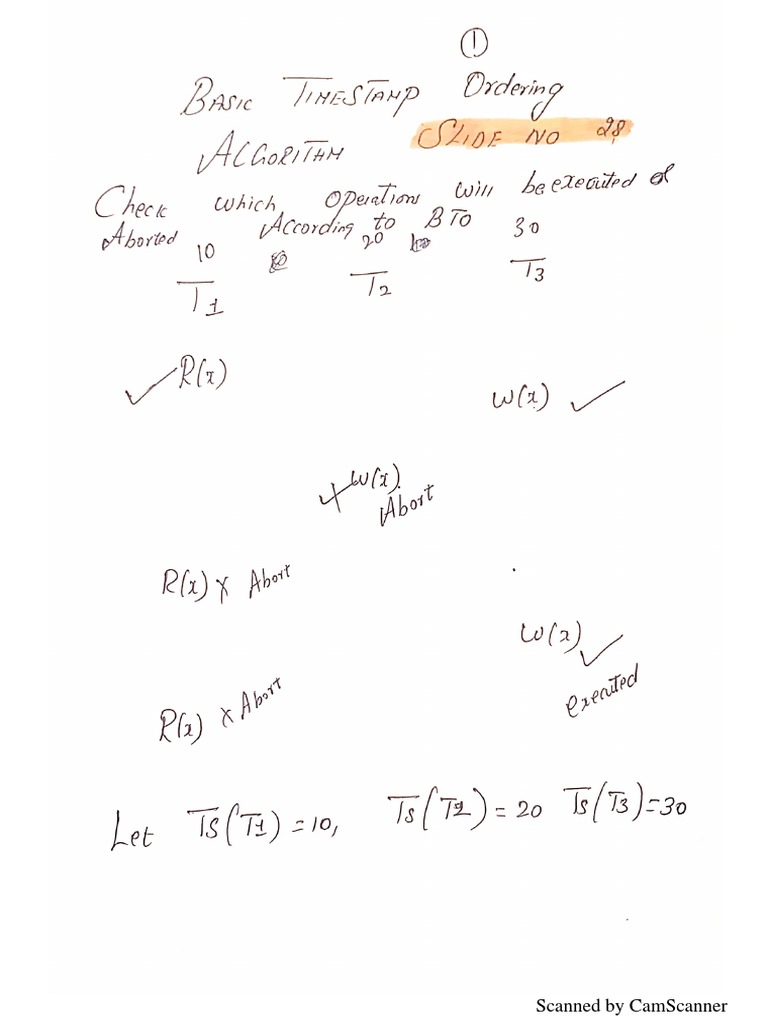 1
BASIC TIMESTAMP Ordering
SLIDE NO 28
ALGORITHM
Check which operations will be executed or
Aborted According to BTO
10 20 30
T1 T2 T3
✓ R(x) W(x) ✓
X W(x)
Abort
R(x) X Abort
W(x) ✓
executed
R(x) X Abort
Let TS(T1) = 10, TS(T2) = 20 TS(T3) = 30
Scanned by CamScanner